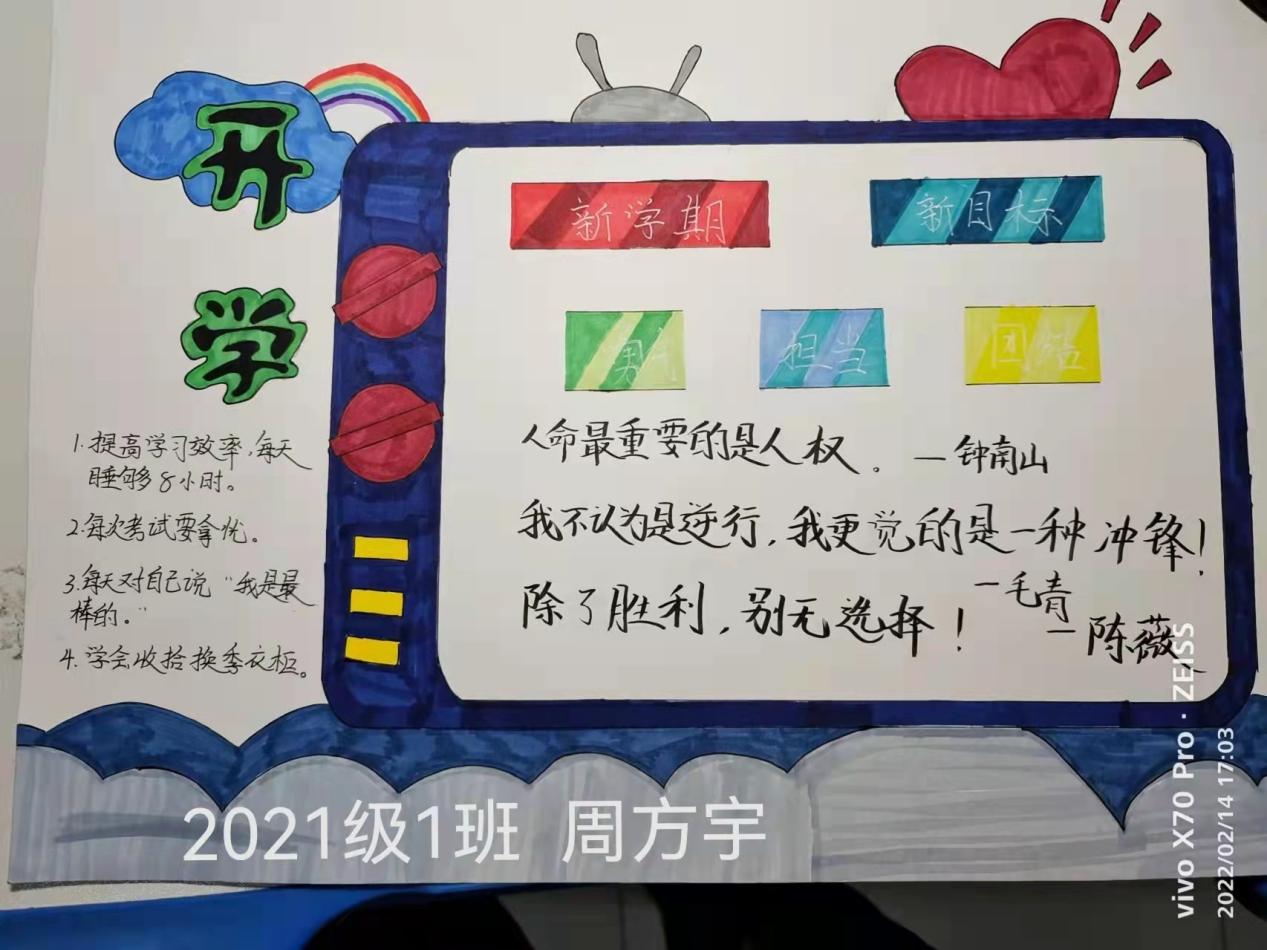 开
学
1.提高学习效率,每天
睡够8小时。
2.每次考试要拿优。
3.每天对自己说“我是最
棒的。”
4.学会收拾换季衣柜。
新学期
新目标
担当
团结
人命最重要的是人权。—钟南山
我不认为是逆行,我更觉的是一种冲锋!
—毛青
除了胜利,别无选择!
—陈薇
2021级1班 周方宇
vivo X70 Pro · ZEISS
2022/02/14 17:03